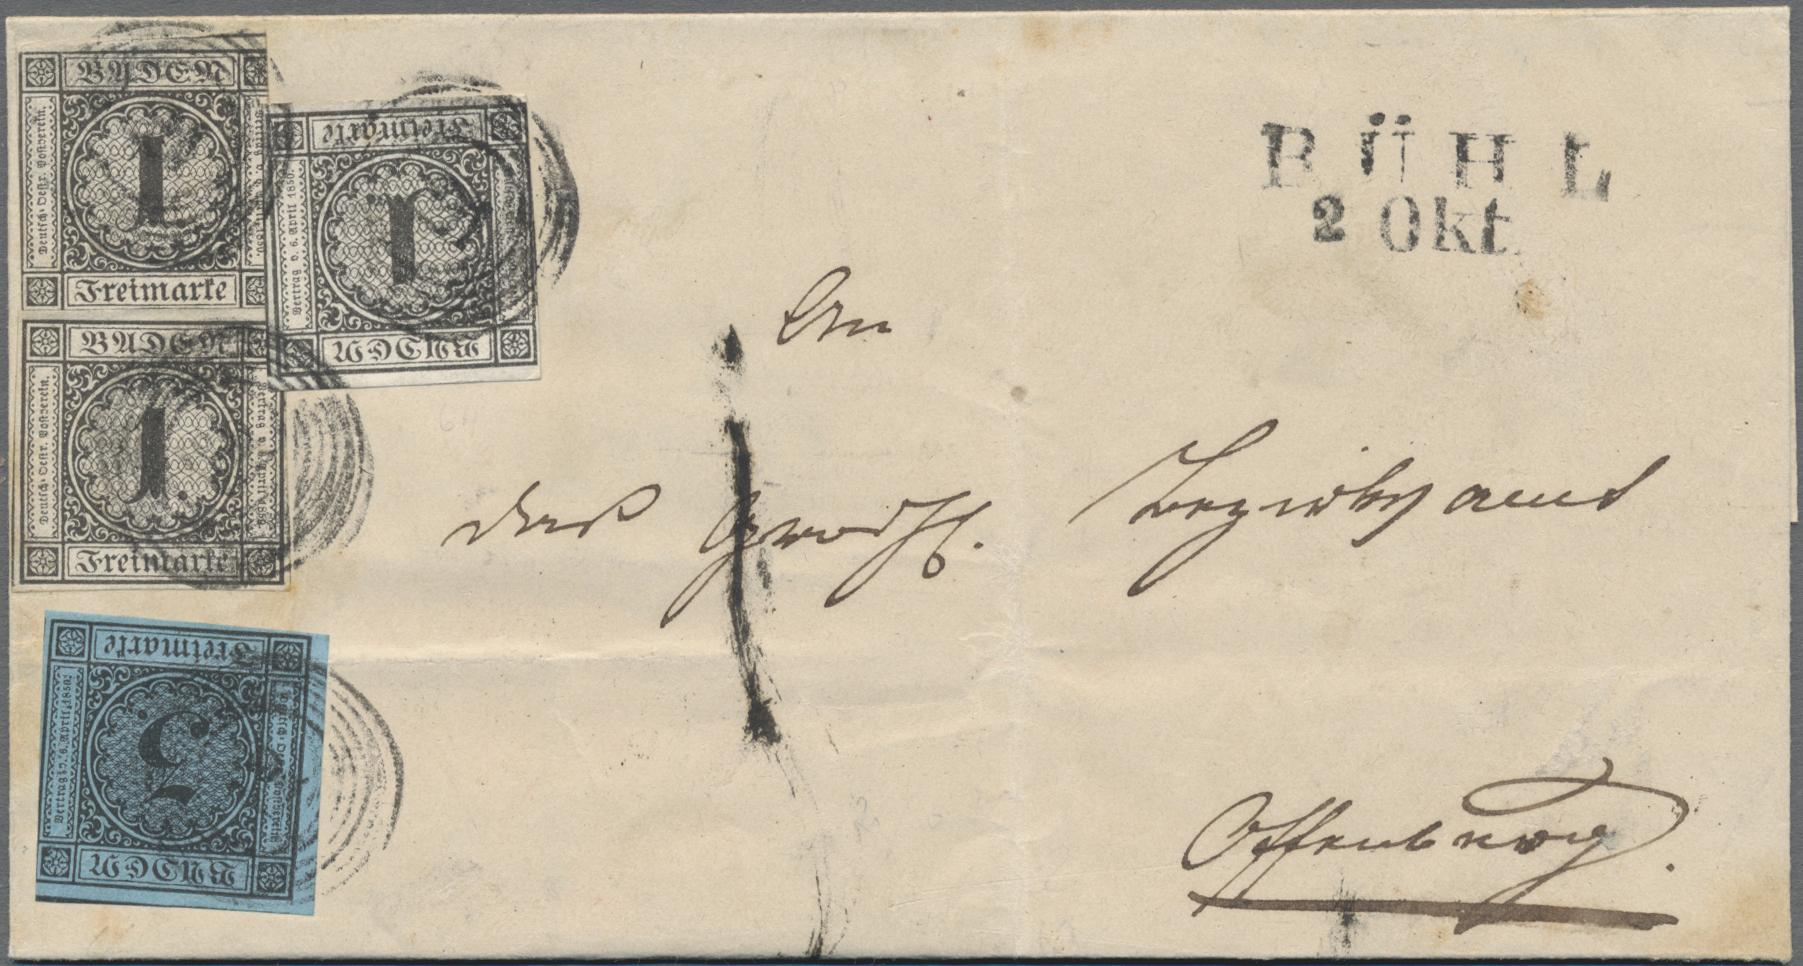 BADEN
Deutsch-Oestr. Postverein.
1
Freimarke
BADEN
Deutsch-Oestr. Postverein.
Vertrag v. 6. April 1850
1.
Freimarke
BADEN
Vertrag v. 6. April 1850.
1
Freimarke
BADEN
Vertrag v. 6. April 1850.
3
Freimarke
BÜHL
2 Okt
An
das Großh. Bezirksamt
Offenburg.